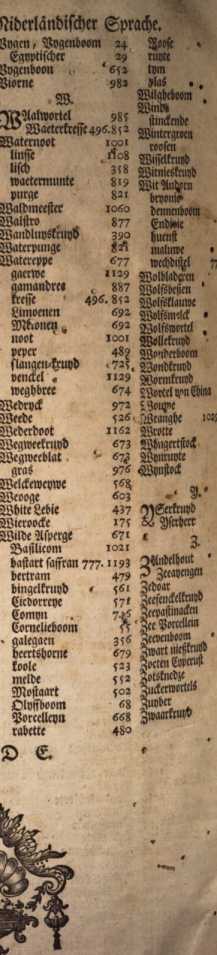 Niderländischer Sprache.
Vygen, Vygenboom 24
Egyptischer 29
Vygenboon 652
Viorne 982
W.
Waalwortel 985
Waeterkresse 496.852
Waternoot 1001
linsse 1108
lisch 358
waetermunte 819
purge 821
Waldmeester 1060
Walstro 877
Wandluyskruyd 390
Waterpunge 821
Watereppe 677
gaerwe 1129
gamandree 887
kresse 496. 852
Limoenen 692
692
noot 1001
peper 489
slangen-kruyd 725
venckel 1129
weghbree 674
Wedryck 972
Weede 526
Wederdoot 1162
Wegweekruyd 673
Wegweeblat 673
gras 976
Welckeweywe 568
Weooge 603
White Lebie 437
Wieroocke 175
Wilde Asperge 671
Basilicom 1021
bastart saffran 777. 1193
bertram 479
bingelkruyd 561
Cicdoreye 571
Comyn
Cornelieboom
galegaen 356
heertshorne 679
koole 523
melde 552
Mostaart 502
Olyfboom 68
Porcelleyn 668
rabette 480
D E.
Roose
ruyte
tym
vlas
Wilgheboom
Winde
stinckende
Wintergroen
roosen
Wisselkruyd
Witnieskruyd
Wit Andoren
bryonie
dennenboom
Endivie
huenst
maluwe
wechdistel
Wolbladeren
Wolfsbesien
Wolfsklauwe
Wolfsmelck
Wolfswortel
Wollekruyd
Wonderboom
Wondkruyd
Wormkruyd
Wortel van China
Wouwe
Wranghe
Wrotte
Wyngertstock
Wynruyte
Wynstock
Y.
Yserkruyd
Yserherr
Z.
Zandelhout
Zeeayengen
Zedoar
Zeesenckelkruyd
Zeepastinacken
Zee Porcellein
Zevenboom
Zwart nieskruyd
Zoeten Cyperus
Zotsknedze
Zuckerwortels
Zuyber
Zwaarkruyd